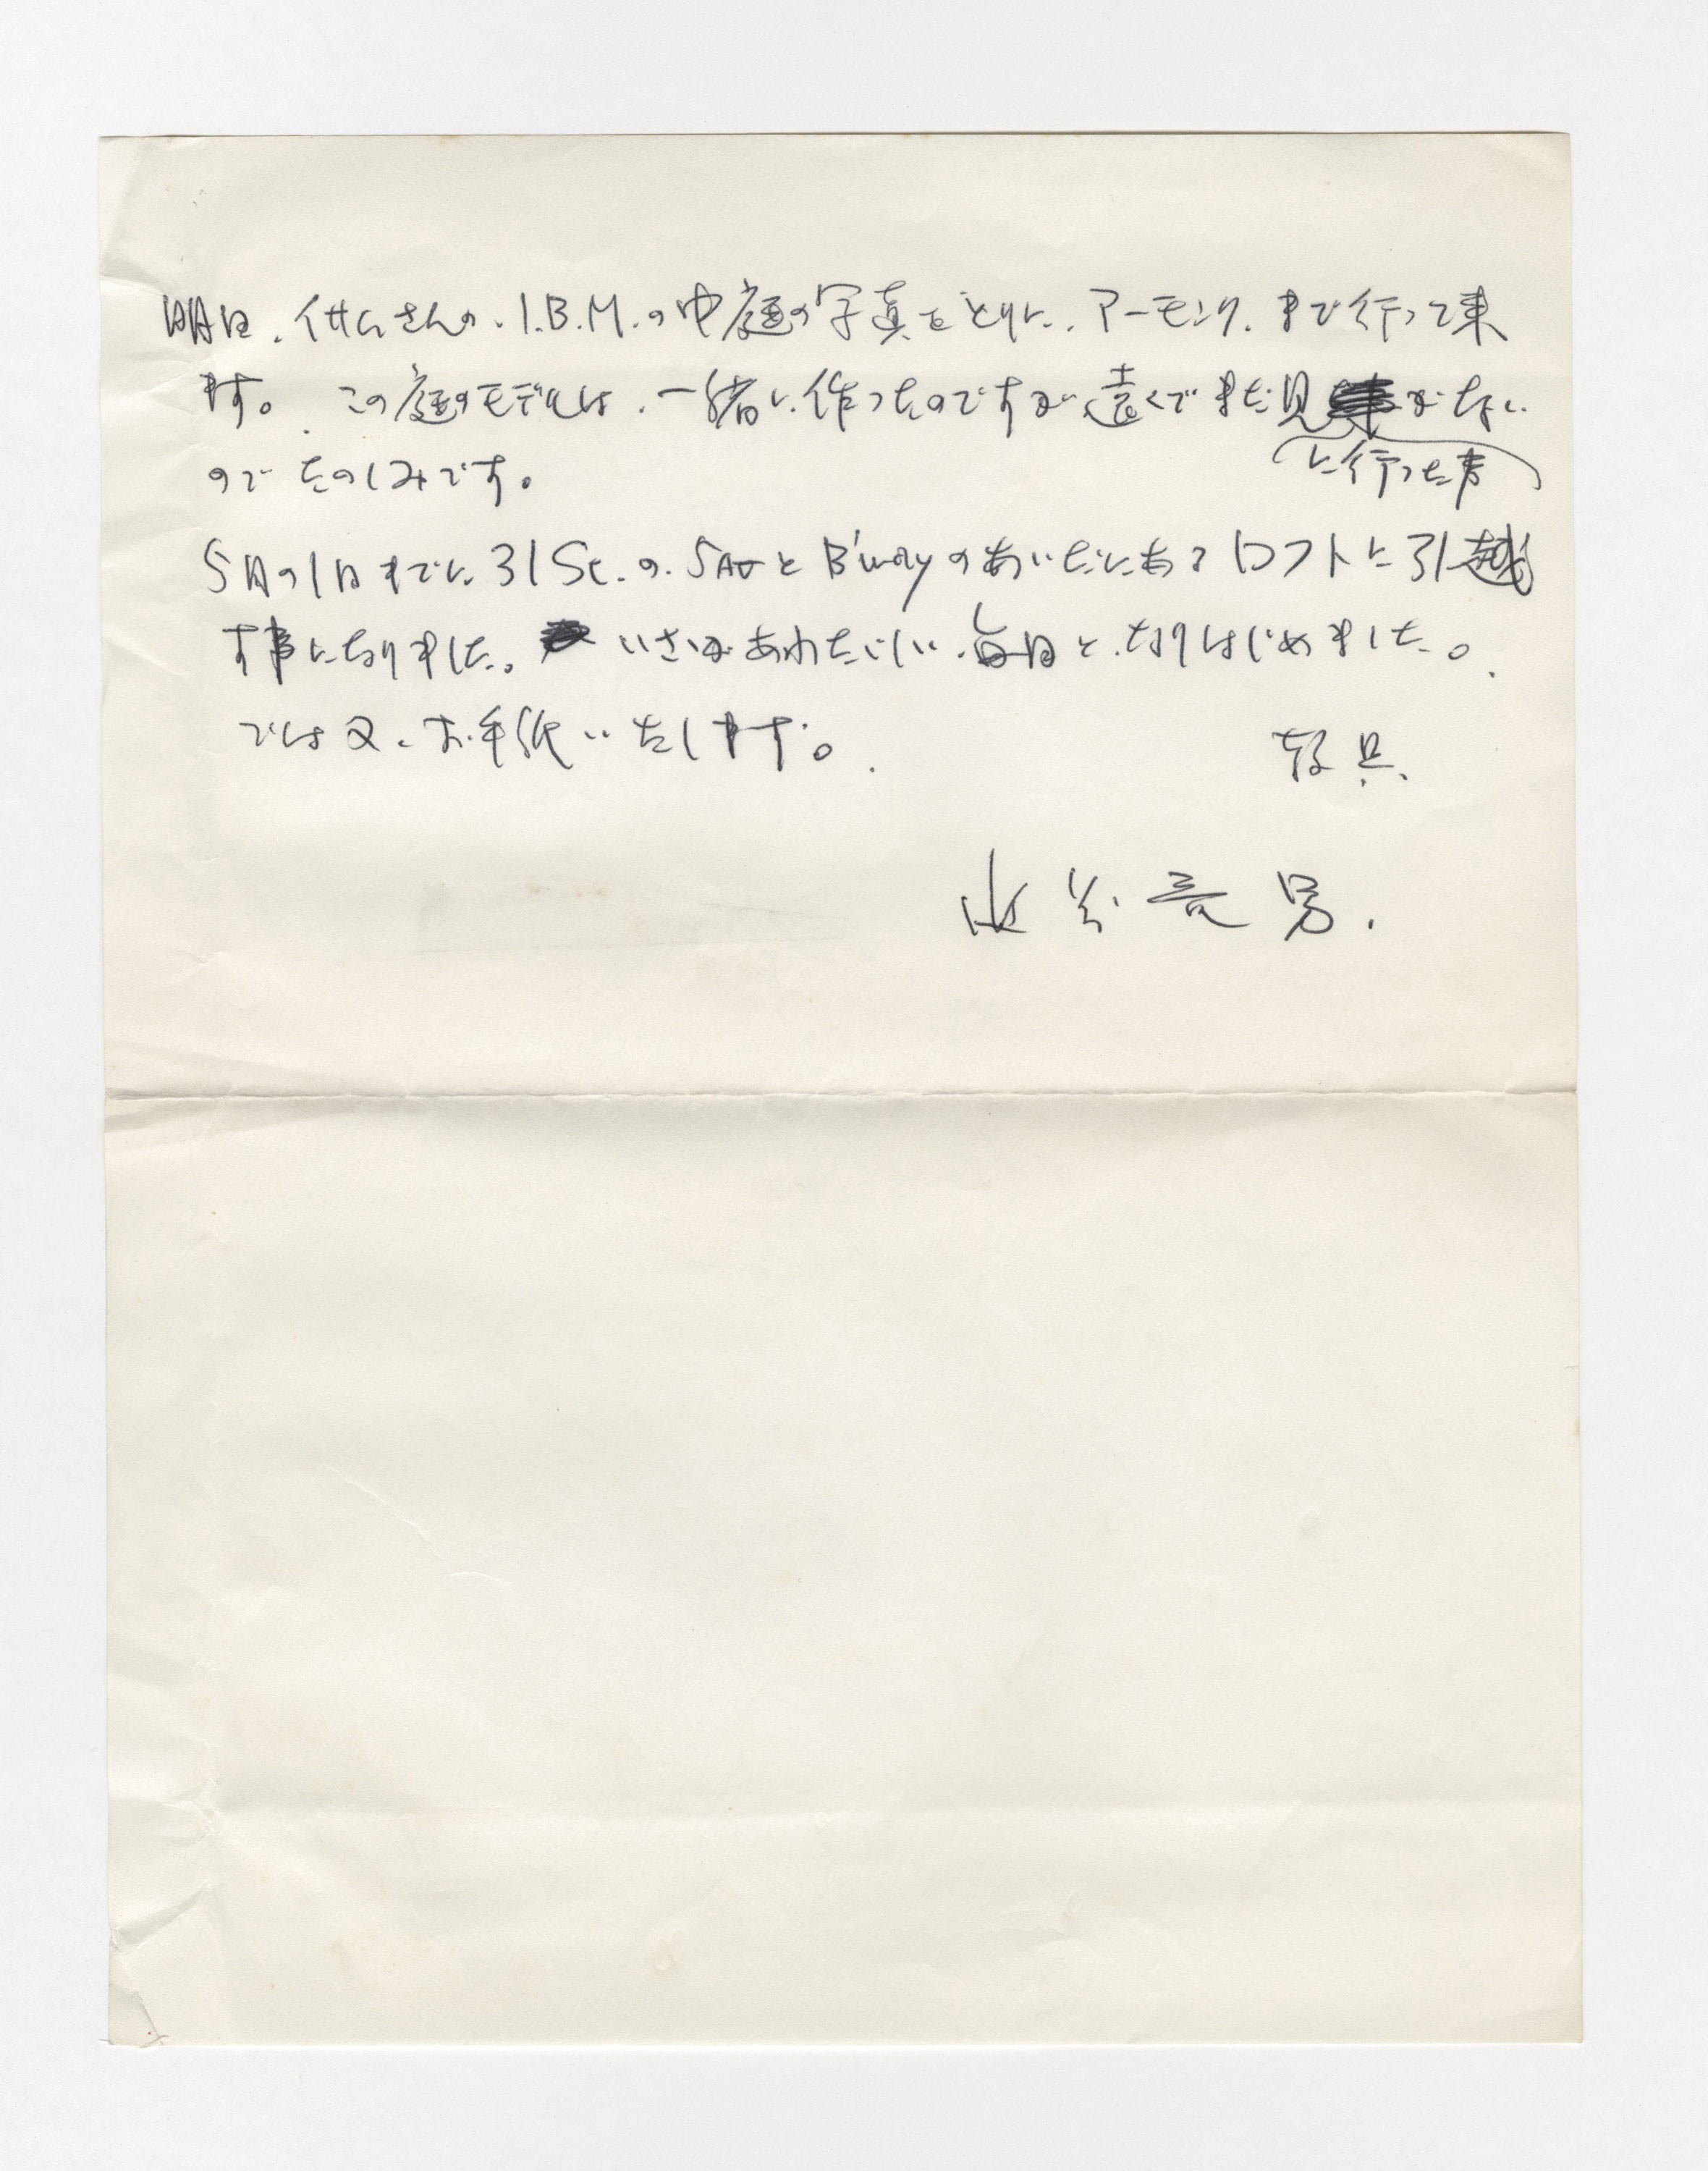 明日、イサムさんの、I.B.M.の中庭の写真をとりに、アーモンク、まで行って来
ます。この庭のモデルは、一緒に作ったのですが遠くてまだ見に行った事がない
のでたのしみです。
5月の1日までに31St.の.5Avと B'wayのあいだにある ロフトに引越
す事になりました。いささかあわただしい、毎日と、なりはじめました。
では又、お手紙いたします。
敬具.
男.